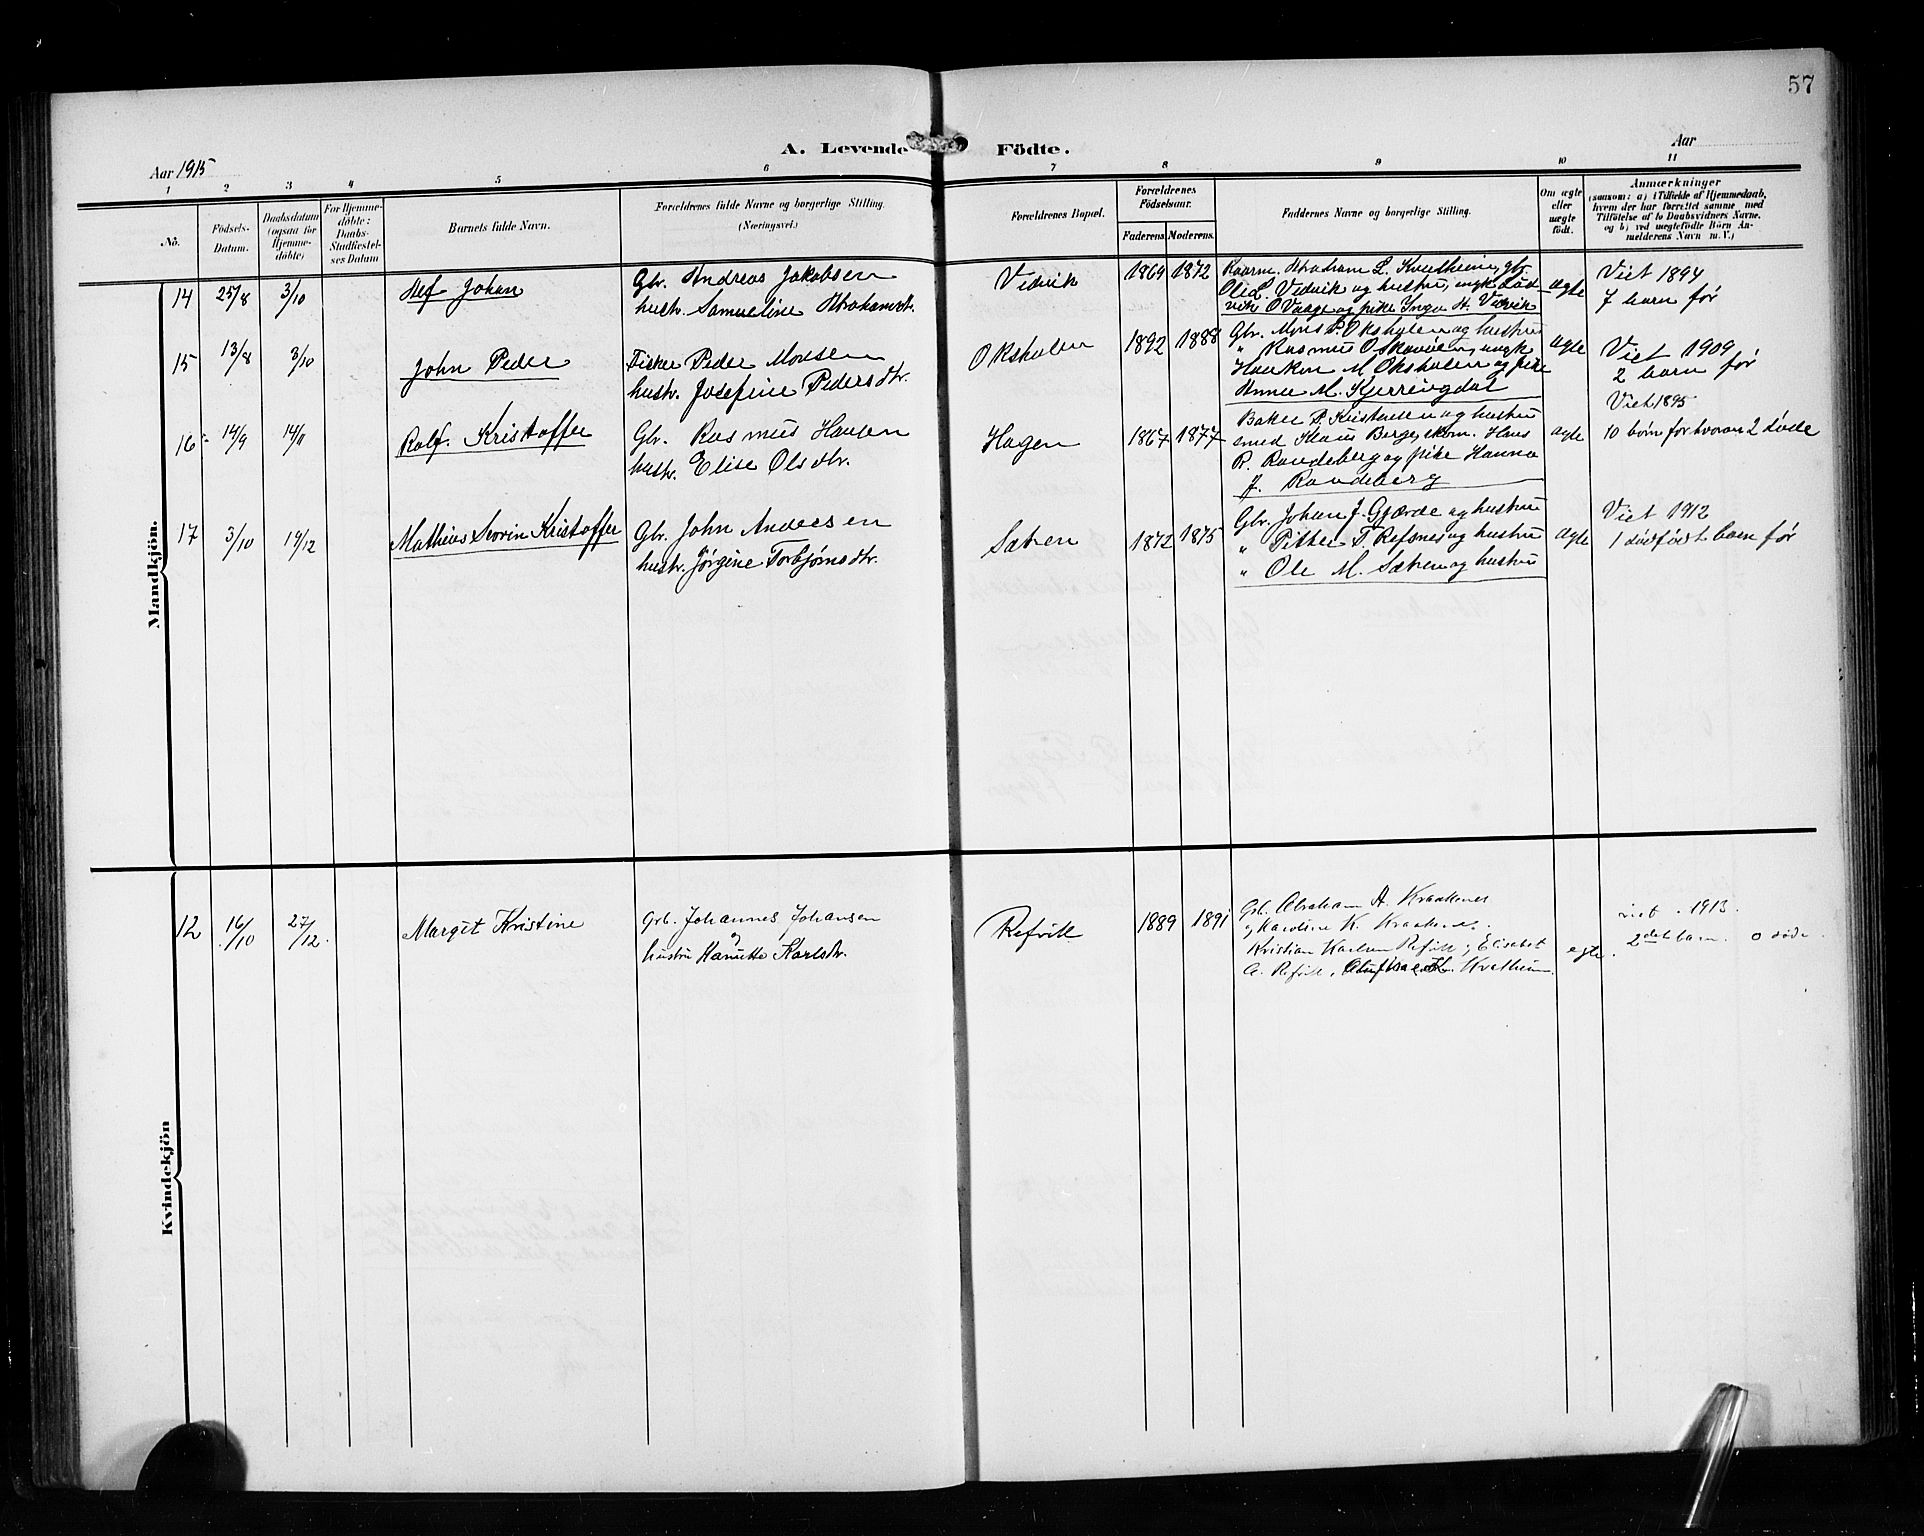 57
A. Levende Födte.
Aar 1915
Aar
1 2 3 4 5 6 7 8 9 10 11
No.
Födsels-Datum.
Daabsdatum (ogsaa for Hjemme-döbte)
For Hjemme-döbte: Daabs-Stadfæstel-ses Datum
Barnets fulde Navn.
Forældrenes fulde Navne og borgerlige Stilling.
(Næringsvei.)
Forældrenes Bopæl.
Forældrenes Födselsaar.
Faderens. Moderens.
Faddernes Navne og borgerlige Stilling.
Om ægte eller uægte födt.
Anmærkninger
(saasom: a) i Tilfælde af Hjemmedaab,
hvem der har forrettet samme med
Tilföielse af to Daabsvidners Navne,
og b) ved uægtefödte Börn An-
melderens Navn m. V.)
Mandkjön.
14 25/8 3/10 Alf Johan
Gbr. Andreas Jakobsen
hustr. Samueline Abrahamsdt.
Vedvik 1869 1872
Kaarm. Abraham L. Kvalheim, gbr.
Ole L. Vedvik og hustru, ungk. Lud-
vik O Vaage og pike Inga A. Vedvik
ægte
Viet 1894
7 barn før
15 13/8 3/10 John Peder
Fisker Peder Monsen
hustr. Josefine Pedersdtr.
Oksholen 1892 1888
Gbr. Mons P. Oksholen og hustru
" Rasmus O. ungk.
Haakon M. Oksholen og pike
Anna M. Kjerringdal
ægte
Viet 1909
2 barn før
16 14/9 14/11 Rolf Kristoffer
Gbr. Rasmus Hansen
hustr. Elise Olsdtr.
Hagen 1867 1877
Baker P. Kristensen og hustru
smed Klaus Berge, Hans
R. Raudeberg og pike Hanna
J. Raudeberg
ægte
Viet 1895
10 børn før hvorav 2 døde
17 3/10 19/12 Mathias Severin Kristoffer
Gbr. John Andersen
hustr. Jørgine Torbjørnsdtr.
Sætren 1872 1875
Gbr. Johan J. Gjærde og hustru
" Pitter T. Refsnes og hustru
" Ole M. Sætren og hustru
ægte
Viet 1912
1 dødfødt barn før
Kvindekjön
12 16/10 27/12. Margit Kristine
Grb. Johannes Johansen
og
hustru Hanutte Karlsdtr.
Refvik 1889 1891
Grb. Abraham A. Kraakenes
og Karoline K. Kraakenes.
Kristian Karlsen Refvik, Elisabet
A. Refvik, Kvalheim.
egte.
viet 1913.
2det barn. 0 døde.